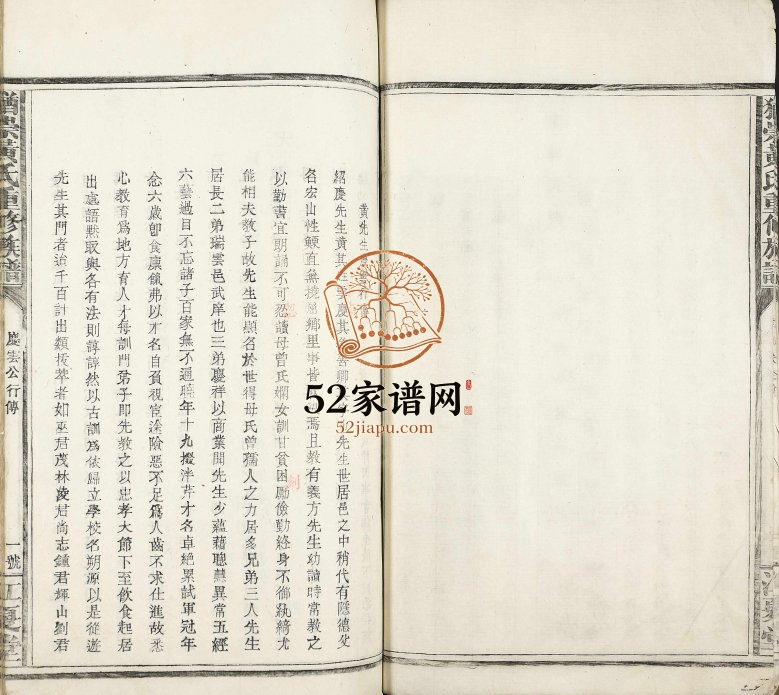 黃先生
紹慶先生黃其 慶其 先生世居邑之中稍代有隱德父
名宏山性鯁直無撓 鄉里事皆 焉且教有義方先生幼讀時常教之
以勤書宜朗誦不可忽讀母曾氏嫻女訓甘貧困勵儉勤終身不御紈綺尤
能相夫教子故先生能顯名於世得母氏曾孺人之力居多兄弟三人先生
居長二弟瑞雲邑武庠也三弟慶祥以商業聞先生少蘊藉聰慧異常五經
六藝過目不忘諸子百家無不通曉年十九掇泮芹才名卓絶累試軍冠年
念六歲卽食廩餼弗以才名自負視宦途險惡不足爲人齒不求仕進故悉
心教育爲地方育人才每訓門弟子即先教之以忠孝大節下至飲食起居
出處語默取與各有法則諄諄然以古訓爲依歸立學校名朔源以是從遊
先生其門者治千百計出類拔萃者如巫君茂林 君尚志鍾君輝山劉君
猶崇黃氏重修族譜
慶雲公行傳
一號
江夏堂
黃氏重修族譜
52家谱网
52jiapu.com